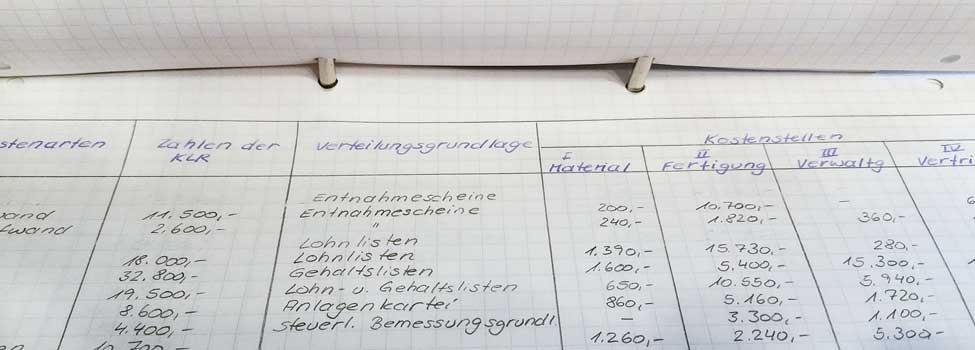 Kostenstellen
stenarten Zahlen der Verteilungsgrundlage I II III IV
KLR Material Fertigung Verwaltg Vertri
Entnahmescheine
wand 11.500,- Entnahmescheine 200,- 10.700,- - 6
fwand 2.600,- " 240,- 1.820,- 360,-
Lohnlisten
18.000,- Lohnlisten 1.390,- 15.730,- 280,-
32.800,- Gehaltslisten 1.600,- 5.400,- 15.300,- 1
19.500,- Lohn- u. Gehaltslisten 650,- 10.550,- 5.940,-
8.600,- Anlagenkartei 860,- 5.160,- 1.720,-
4.400,- steuerl. Bemessungsgrundl. - 3.300,- 1.100,-
en 10.700,- 1.260,- 2.240,- 5.300,-